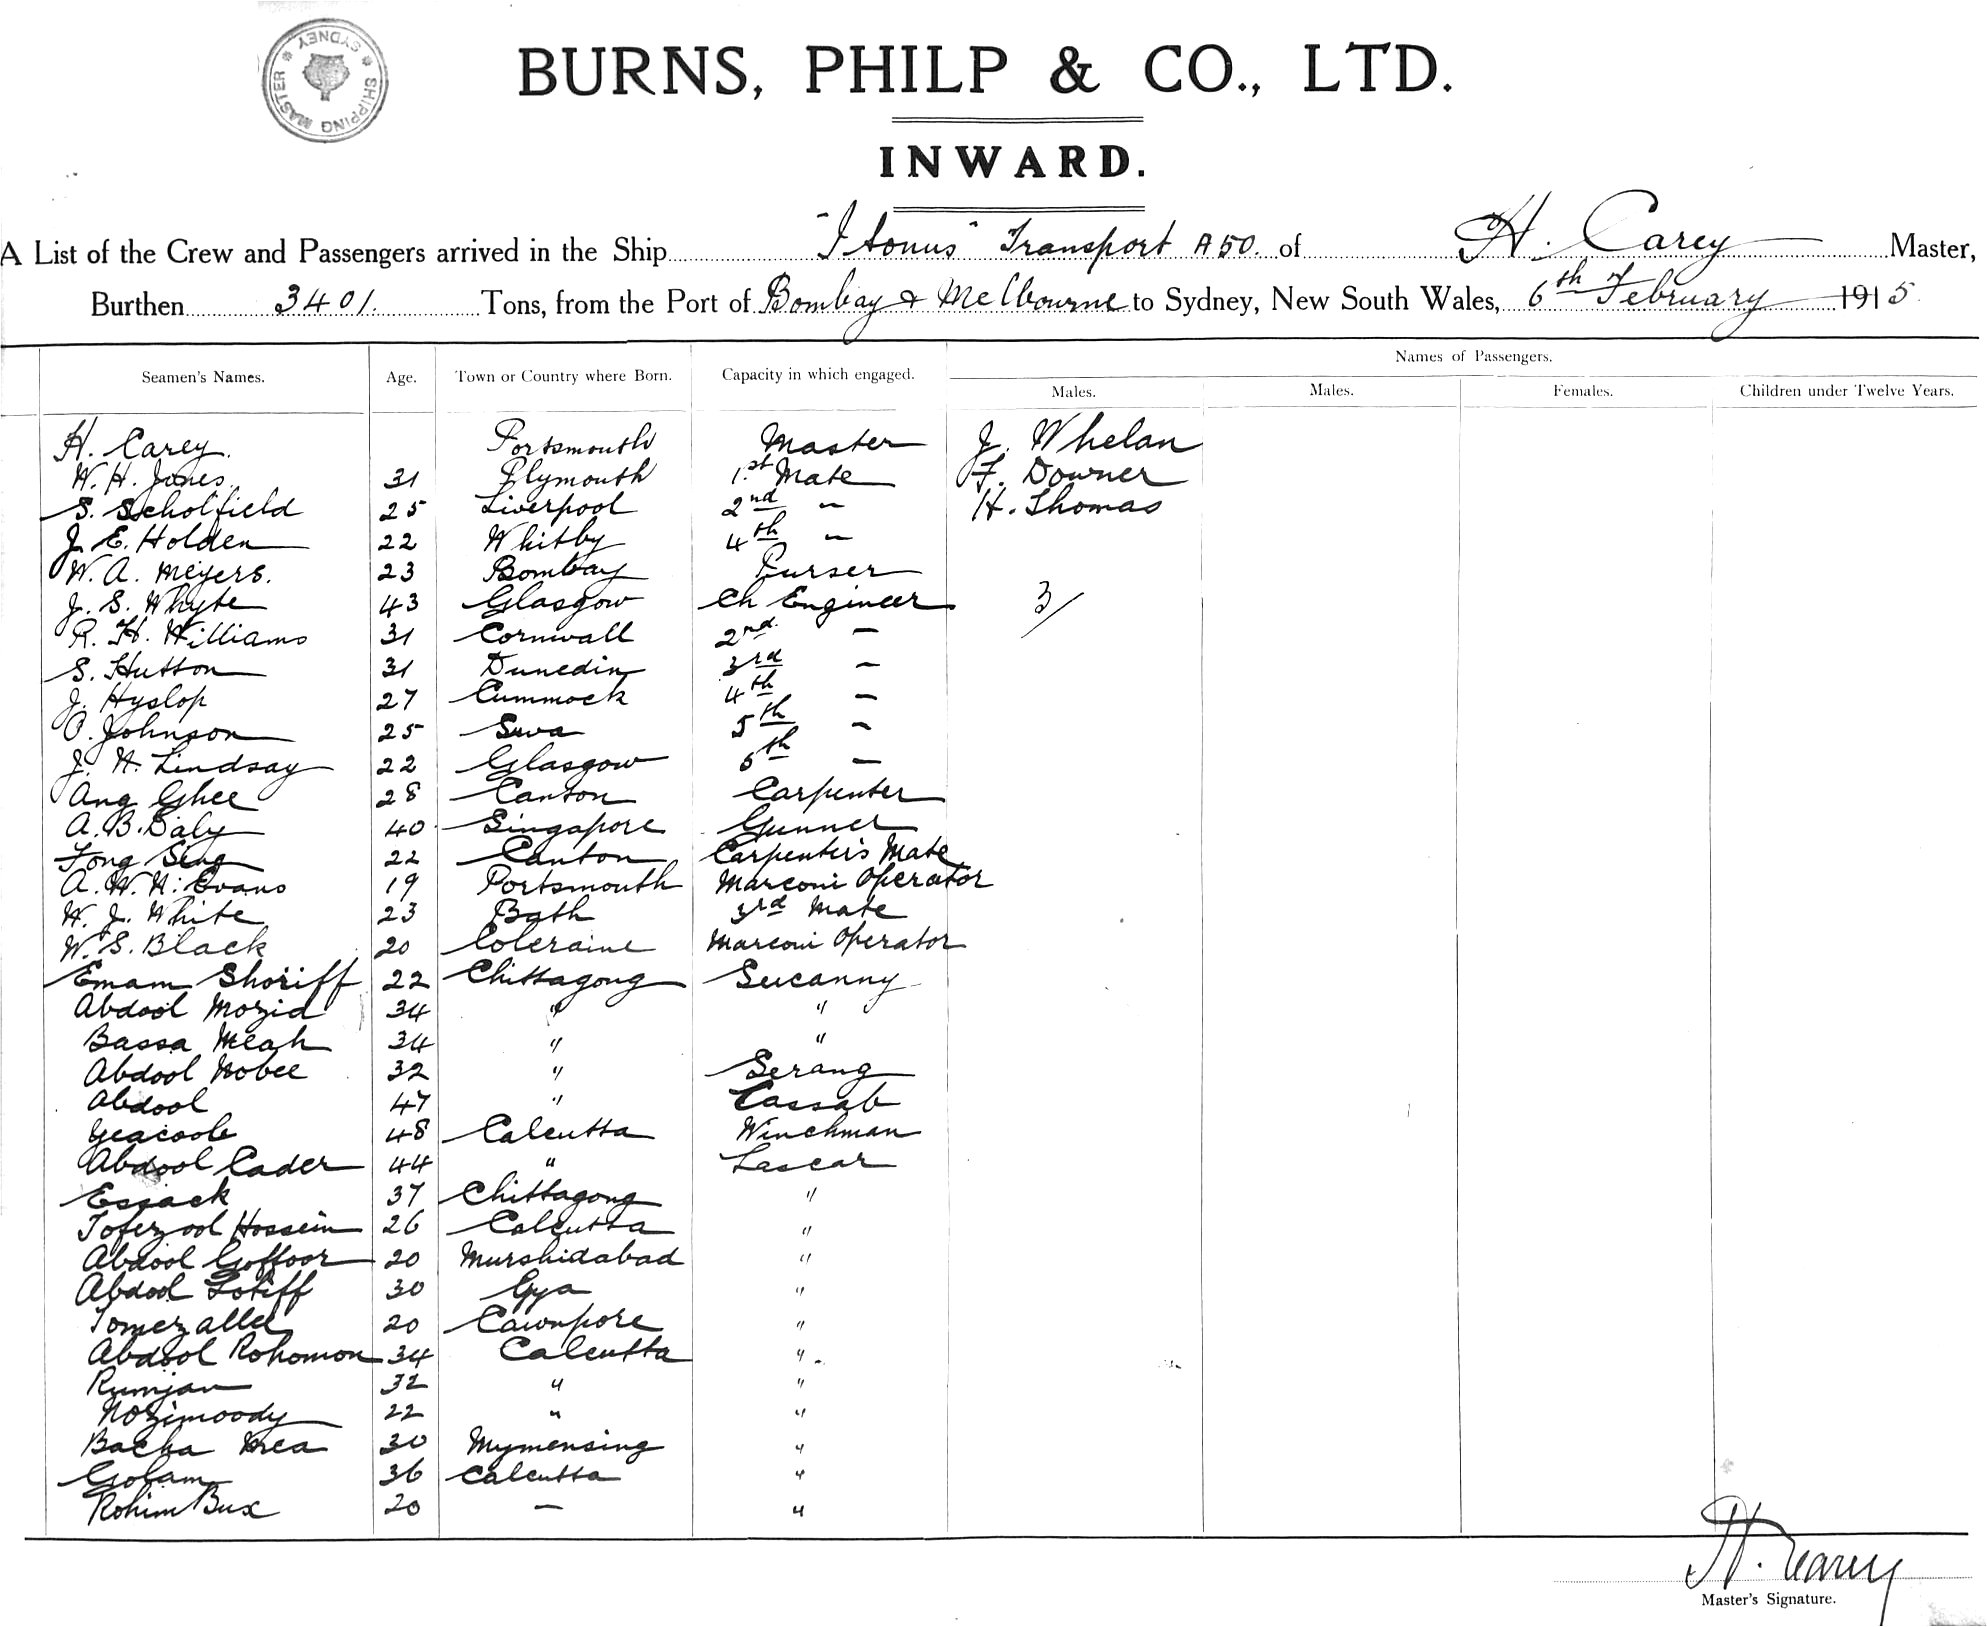 SHIPPING MASTER * SYDNEY *
BURNS, PHILP & CO., LTD.
INWARD.
A List of the Crew and Passengers arrived in the Ship "Itonus" Transport A50. of H. Carey Master,
Burthen 3401. Tons, from the Port of Bombay & Melbourne to Sydney, New South Wales, 6th February 1915
Names of Passengers.
Seamen's Names. Age. Town or Country where Born. Capacity in which engaged. Males. Males. Females. Children under Twelve Years.
H. Carey. Portsmouth Master J. Whelan
W. H. Jones. 31 Plymouth 1st Mate F. Downer
S. Scholfield 25 Liverpool 2nd " H. Thomas
J. E. Holden 22 Whitby 4th "
W. A. Meyers. 23 Bombay Purser
J. S. Whyte 43 Glasgow Ch Engineer 3/
R. H. Williams 31 Cornwall 2nd. -
S. Hutton 31 Dunedin 3rd -
J. Hyslop 27 Cummock 4th -
O. Johnson 25 Suva 5th -
J. H. Lindsay 22 Glasgow 6th -
Ang Ghee 28 Canton Carpenter
A. B. Daly 40 Singapore Gunner
Fong Seng 22 Canton Carpenter's Mate
A. W. H. Evans 19 Portsmouth Marconi Operator
H. J. White 23 Bath 3rd Mate
W. S. Black 20 Coleraine Marconi Operator
Emam Shoriff 22 Chittagong Sucanny
Abdool Mozid 34 " "
Bassa Meah 34 " "
Abdool Nobee 32 " Serang
Abdool 47 " Cassab
Yeacoob 48 Calcutta Winchman
Abdool Cader 44 " Lascar
Essack 37 Chittagong "
Tofezool Hossein 26 Calcutta "
Abdool Goffoor 20 Murshidabad "
Abdool Lotiff 30 Gya "
Tomezallee 20 Cawnpore "
Abdool Rohomon 34 Calcutta "
Rumjan 32 " "
Nozimoody 22 " "
Bacha Mea 30 Mymensing "
Golam 36 Calcutta "
Rohim Bux 20 - "
H. Carey
Master's Signature.